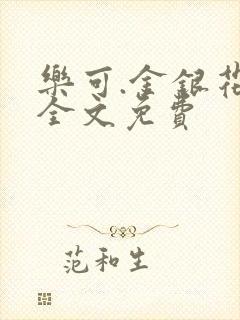 樂可.金銀花
全文免費
范和生